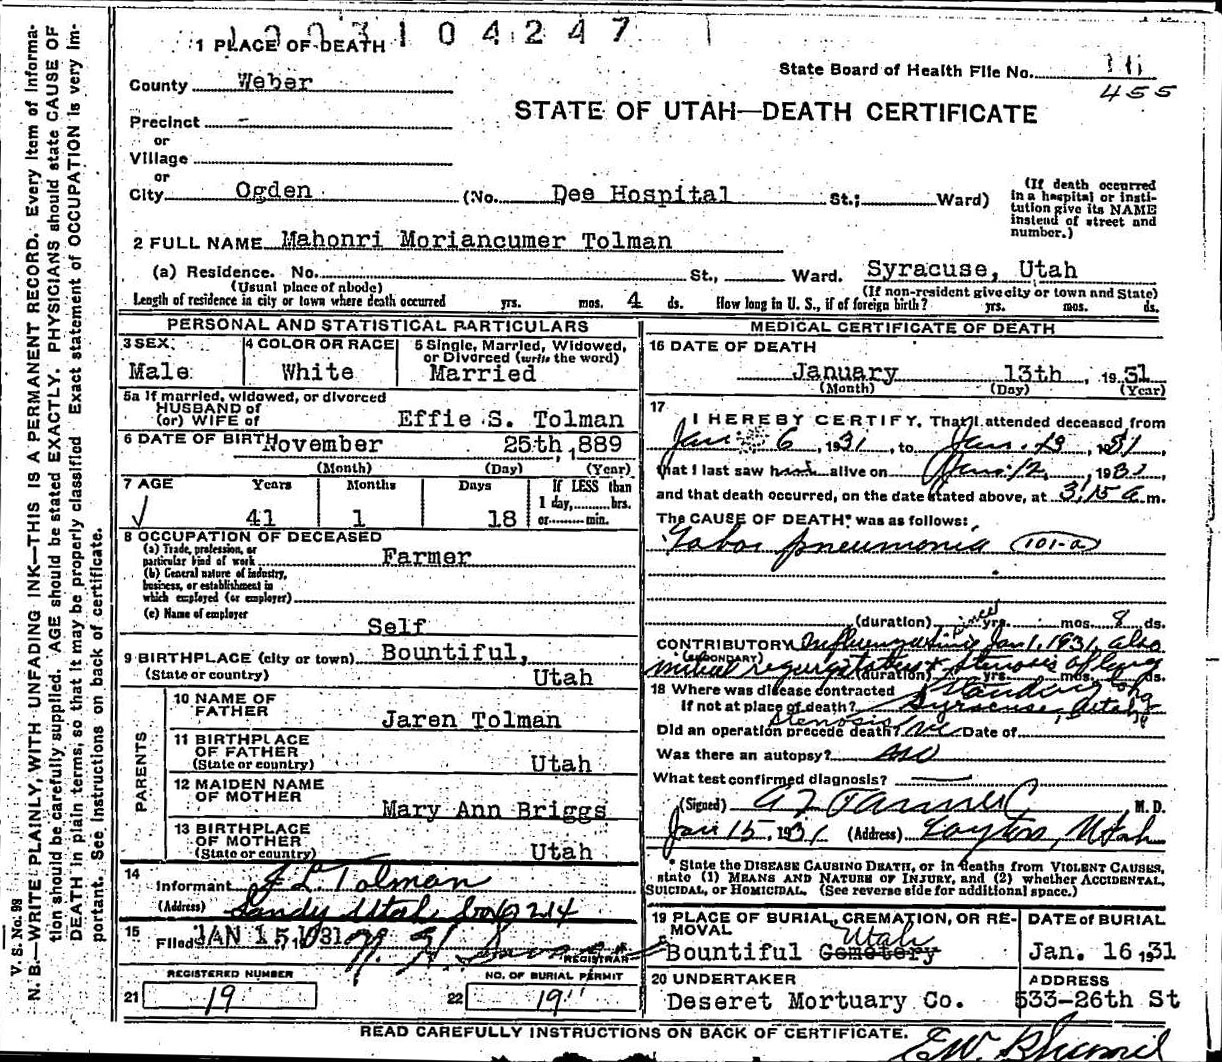 1003104247
1 PLACE OF DEATH
State Board of Health File No.
455
County Weber
STATE OF UTAH—DEATH CERTIFICATE
Precinct -
or
Village
or
City Ogden (No. Dee Hospital St.; Ward)
(If death occurred in a hospital or institution give its NAME instead of street and number.)
2 FULL NAME Mahonri Moriancumer Tolman
(a) Residence. No. St., Ward. Syracuse, Utah
(Usual place of abode) (If non-resident give city or town and State)
Length of residence in city or town where death occurred yrs. mos. 4 ds. How long in U. S., if of foreign birth? yrs. mos. ds.
PERSONAL AND STATISTICAL PARTICULARS
3 SEX: 4 COLOR OR RACE 5 Single, Married, Widowed,
or Divorced (write the word)
Male White Married
5a If married, widowed, or divorced
HUSBAND of
(or) WIFE of Effie S. Tolman
6 DATE OF BIRTH November 25th, 889
(Month) (Day) (Year)
7 AGE Years Months Days If LESS than
1 day, hrs.
or min.
41 1 18
8 OCCUPATION OF DECEASED
(a) Trade, profession, or
particular kind of work Farmer
(b) General nature of industry,
business, or establishment in
which employed (or employer)
(c) Name of employer
Self
9 BIRTHPLACE (city or town) Bountiful,
(State or country) Utah
PARENTS
10 NAME OF
FATHER Jaren Tolman
11 BIRTHPLACE
OF FATHER
(State or country) Utah
12 MAIDEN NAME
OF MOTHER Mary Ann Briggs
13 BIRTHPLACE
OF MOTHER
(State or country) Utah
14
Informant J L Tolman
(Address) Sandy Utah, box 214
15
Filed JAN 15 1931
REGISTRAR
REGISTERED NUMBER NO. OF BURIAL PERMIT
21 19 22 19
MEDICAL CERTIFICATE OF DEATH
16 DATE OF DEATH
January 13th, 1931
(Month) (Day) (Year)
17
I HEREBY CERTIFY, That I attended deceased from
Jan 6, 1931, to Jan. 13, 1931
that I last saw him alive on Jan. 12, 1931
and that death occurred, on the date stated above, at 3:15 a m.
The CAUSE OF DEATH* was as follows:
Lobar pneumonia (101-a)
(duration) yrs. mos. 8 ds.
CONTRIBUTORY Influenza since Jan 1, 1931, also
(SECONDARY) mitral regurgitation & stenosis of long
(duration) yrs. mos. ds.
standing
18 Where was disease contracted
If not at place of death? Syracuse, Utah
stenosis
Did an operation precede death? no Date of
Was there an autopsy? no
What test confirmed diagnosis?
(Signed) M. D.
Jan 15, 1931 (Address) Layton, Utah
* State the DISEASE CAUSING DEATH, or in deaths from VIOLENT CAUSES,
state (1) MEANS AND NATURE OF INJURY, and (2) whether ACCIDENTAL,
SUICIDAL, or HOMICIDAL. (See reverse side for additional space.)
19 PLACE OF BURIAL, CREMATION, OR RE-
MOVAL
DATE of BURIAL
Utah
Bountiful Cemetery Jan. 16 1931
20 UNDERTAKER ADDRESS
Deseret Mortuary Co. 533-26th St
READ CAREFULLY INSTRUCTIONS ON BACK OF CERTIFICATE.
V. S. No. 98
N. B.—WRITE PLAINLY, WITH UNFADING INK—THIS IS A PERMANENT RECORD. Every item of informa-
tion should be carefully supplied. AGE should be stated EXACTLY. PHYSICIANS should state CAUSE OF
DEATH in plain terms, so that it may be properly classified. Exact statement of OCCUPATION is very im-
portant. See instructions on back of certificate.